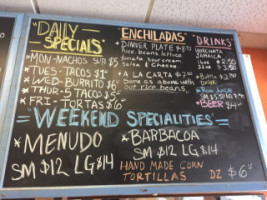 "DAILY
SPECIALS"
*MON-NACHOS SUP $5
*TUES-TACOS $1
*WED-BURRITO $6
*THUR-5 TACO $5
*FRI-TORTAS $6
"ENCHILADAS"
DINNER PLATE
Rice beans lettuce
tomato sour cream
salsa & cheese
*A LA CARTA $7.50
Same as above with
out rice beans.
DRINKS
HORCHATA
JAMAICA
BEER $4
=WEEKEND SPECIALITIES=
*MENUDO
SM $12 LG $14
*BARBACOA
SM $12 LG $14
HAND MADE CORN
TORTILLAS DZ $6